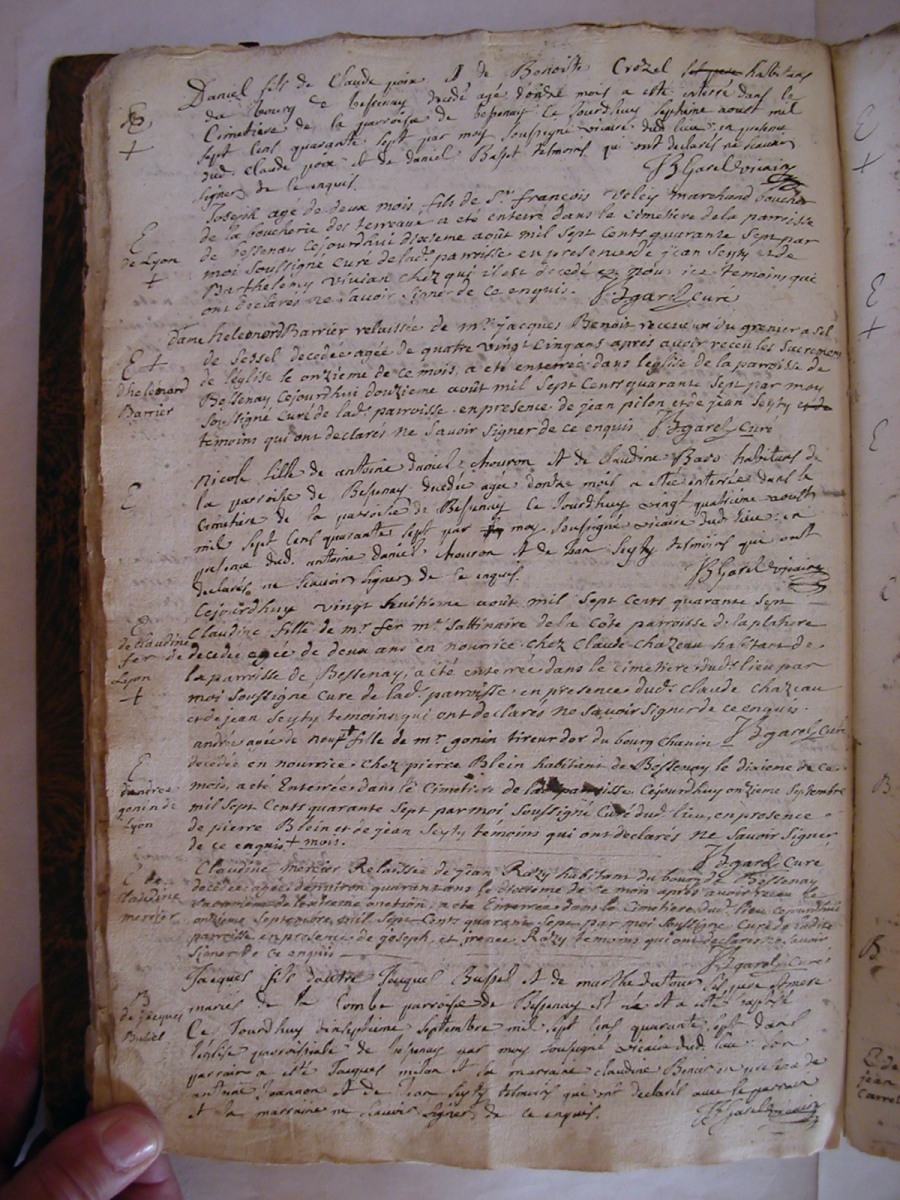 Daniel fils de Claude poix & de Benoiste Crozel habitans
du bourg de bessenay decedé agé d'onze mois a esté interré dans le
E
Cimetiere de la parroisse de bessenay Ce Jourdhuy septieme aoust mil
+
sept Cens quarante sept par moy soussigné vicaire dud. lieu en presence
dud. Claude poix & de daniel Basset temoins qui ont declarés ne sçavoir
signer de ce enquis.
JB Garel vicaire
Joseph agé de deux mois, fils de Sr. françois Veley marchand boucher
de la boucherie des terreaux a été enterré dans le cimetiere de la parroisse
E
de Lyon
+
de bessenay cejourdhui dixieme août mil sept cents quarante sept par
moi soussigné curé de lade. parroisse en presence de jean Seyty et de
Barthelemy Vivian chez qui il est decedé temoins qui
ont declarés ne savoir signer de ce enquis. JB garel Curé
Dame heleonord Barrier relaissée de mr. jacques Benoit receveur du grenier a sel
E +
de Sessel decedée agée de quatre vingt cinq ans apres avoir receu les sacremens
de l'église le onzieme de ce mois, a été enterrée dans l'église de la parroisse de
d'heleonord
Barrier
Bessenay cejourdhui douzieme août mil sept cents quarante sept par moy
soussigné curé de lade. parroisse en presence de jean pilon et de jean Seyty
temoins qui ont declarés ne savoir signer de ce enquis JB garel Curé
E
Nicole fille de antoine daniel chouron & de Claudine habitans de
la parroisse de Bessenay decedée agée d'onze mois a esté interrée dans le
Cimetiere de la parroisse de Bessenay Ce Jourdhuy vingt quatrieme aoust
mil sept Cens quarante sept par moy soussigné vicaire dud. lieu en
presence dud. antoine daniel chouron & de Jean Seyty temoins qui ont
declarés ne sçavoir signer de ce enquis.
JB Garel vicaire
Cejourdhuy vingt huitieme août mil sept cents quarante sept
E
de Claudine
fer de
Lyon
+
Claudine fille de mr. fer me. sattinaire de la Cote parroisse de la platiere
decedée agée de deux ans en nourice chez Claude Chazeau habitant de
la parroisse de Bessenay, a été enterrée dans le cimetiere dud. lieu par
moi soussigné Curé de lade. parroisse en presence dud. Claude chazeau
et de jean Seyty temoins qui ont declarés ne savoir signer de ce enquis.
JB garel Curé
andrée agée de neuf + fille de mr. gonin tireur dor du bourg chanin
decedée en nourrice chez pierre Blein habitant de Bessenay le dixieme de ce
E
d'andrée
gonin de
Lyon
mois, a été Enterrée dans le Cimetiere de lade parroisse, Cejourdhuy onzieme septembre
mil sept Cents quarante sept par moi soussigné Curé dud. lieu, en presence
de pierre Blein et de jean Seyty temoins qui ont declarés ne savoir signer
de ce enquis + mois.
JB garel Curé
E de
Claudine
mercier
Claudine mercier Relaissée de jean Razy habitant du bourg de Bessenay
decedée agée d'environ quarante ans le dixieme de ce mois apres avoir receu le
sacrement de l'extreme onction, a été Enterrée dans le Cimetiere dud. lieu cejourdhui
onzieme septembre mil sept Cents quarante sept par moi soussigné Curé de ladite
parroisse en presence de joseph, et irenée Razy temoins qui ont declarés ne savoir
signer de ce enquis
JB garel Curé
B
de jacques
Bussel
Jacques fils d'autre Jacques Bussel & de marthe dufour ses pere & mere
mariés de la Combe parroisse de Bessenay est né & a esté baptisé
Ce Jourdhuy dixseptieme septembre mil sept Cens quarante sept dans
l'église parroissiale de bessenay par moy soussigné vicaire dud. lieu son
parrain a esté Jacques & la marraine claudine en presence de
antoine Joannon & de Jean Seyty temoins qui ont declarés avec le parrain
& la marraine ne sçavoir signer de ce enquis.
JB Garel vicaire
E
+
E
+
E
B
B